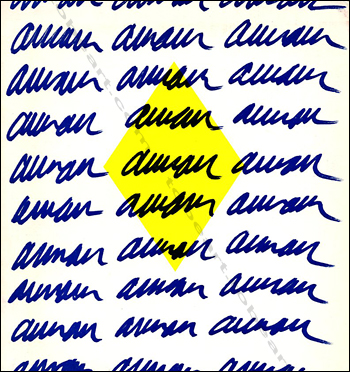 arman arman arman
arman arman arman
arman arman arman
arman arman arman
arman arman arman
arman arman arman
arman arman arman
arman arman arman
arman arman arman
arman arman arman